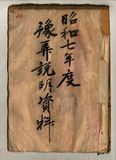 昭和七年度
豫算説明資料